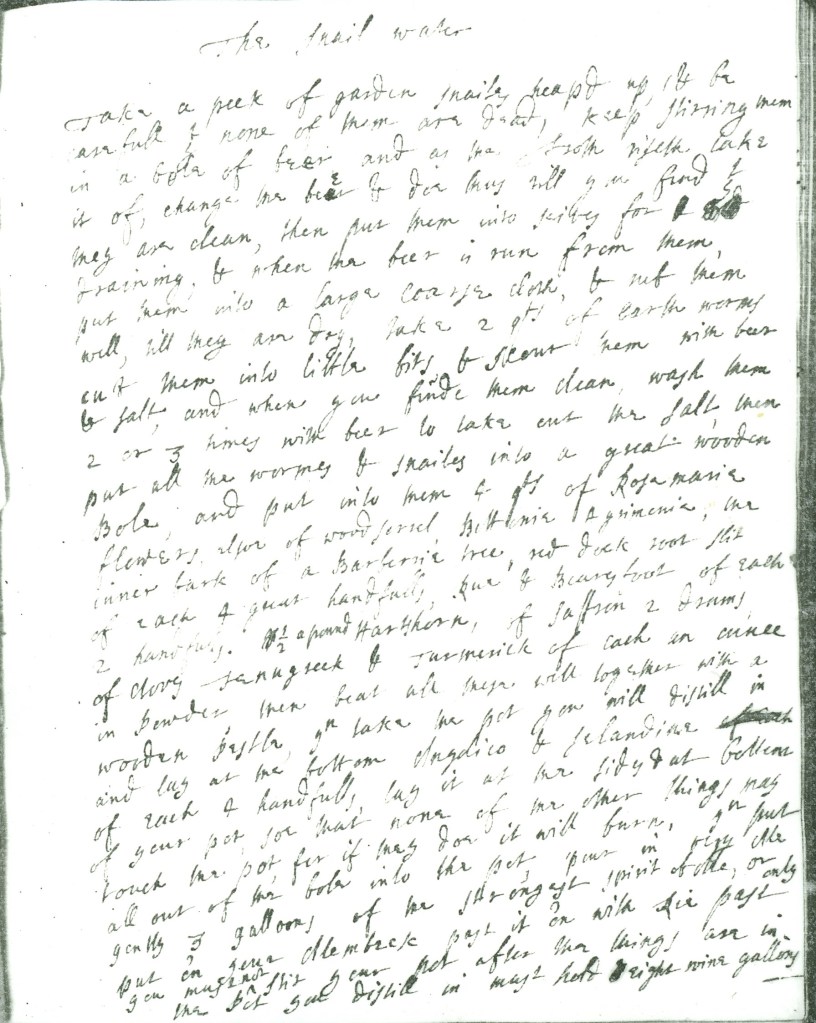 The snail water
Take a peck of garden snailes heap'd up, & be
carefull yt none of them are dead, keep stirring them
in a bole of beer and as the froth riseth take
it of, change the beer & doe thus till you find yt
they are clean, then put them into seives for
draining, & when the beer is run from them,
put them into a large coarse cloth, & rub them
well, till they are dry, take 2 qts of earth worms
cutt them into little bits & scour them with beer
& salt, and when you finde them clean, wash them
2 or 3 times with beer to take out the salt, then
put all the wormes & snailes into a great wooden
Bole, and put into them 4 qts of Rosemarie
flowers, also of woodsorrel, Bittonie Agrimonie, the
inner bark of a Barberrie tree, red dock root slit
of each 4 great handfulls, Rue & Bearsfoot of each
2 handfulls. 1/2 a pound Hartshorn, of saffrin 2 drams,
of cloves fenugreek & Turmerick of each an ounce
in powder, then beat all these well together with a
wooden Pestle, yn take the pot you will distill in
and lay at the bottom Angelico & selandine
of each 4 handfulls, lay it at the sides & at bottom
of your pot, soe that none of the other things may
touch the pot, for if they doe it will burn, yn put
all out of the bole into the pot, pour in very
gently 3 galloons of the strongest spirit of Ale, or
put on your Alembeck past it on with Rie past only
you must not stir your pot after the things are in
the Pot you distill in must hold eight wine gallons